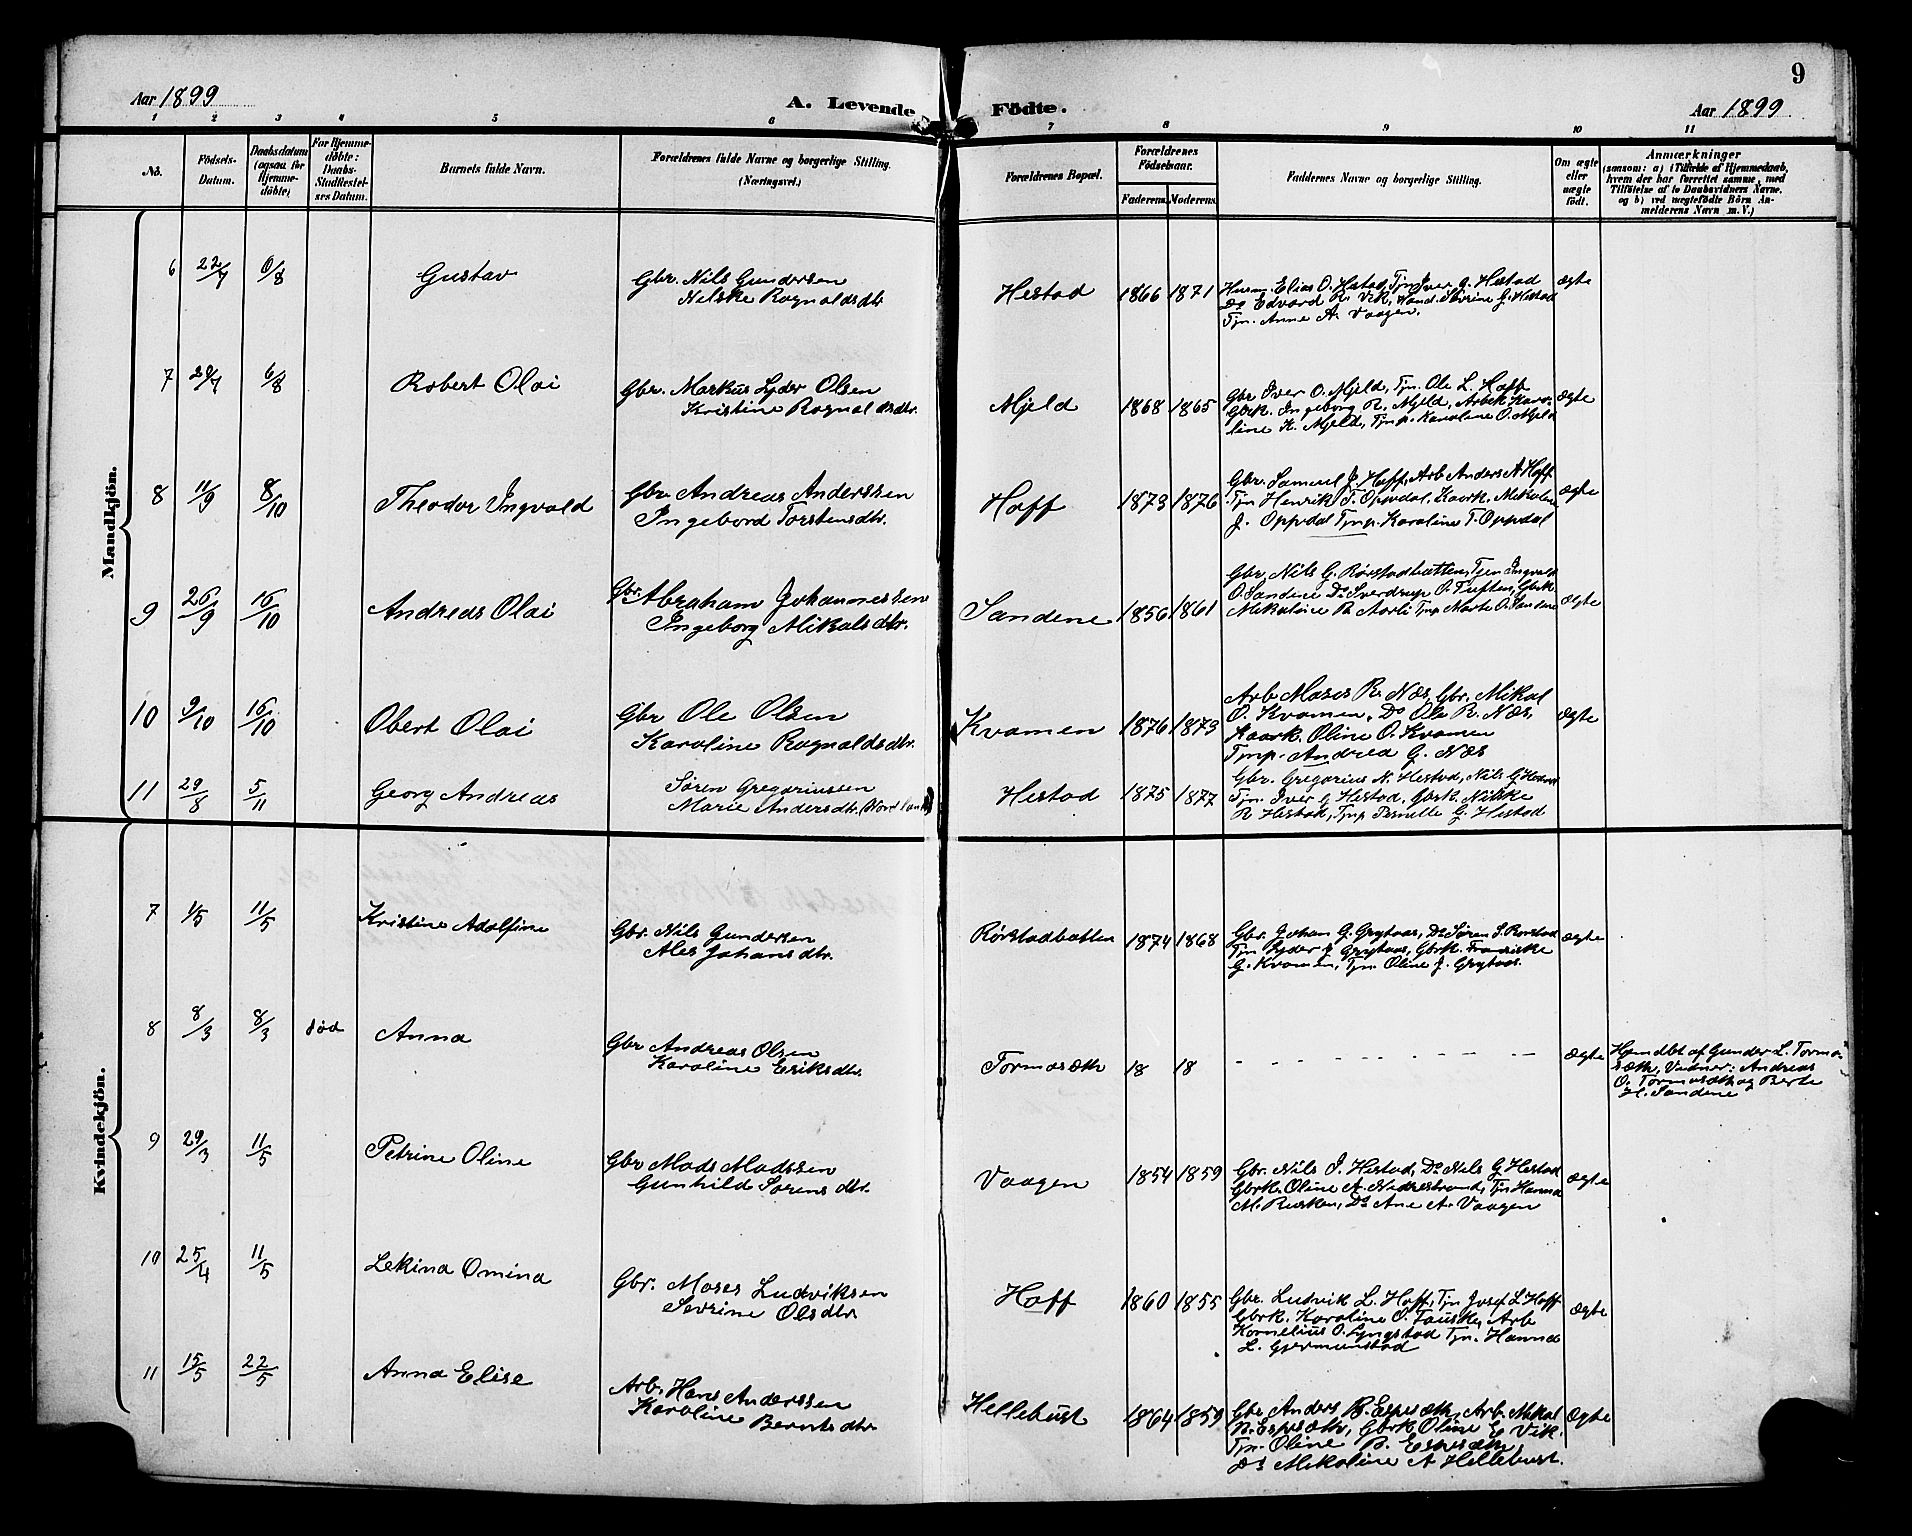 9
Aar 1899
A. Levende Födte.
Aar 1899
1 2 3 4 5 6 7 8 9 10 11
No.
Födsels-
Datum.
Daabsdatum
(ogsaa for
Hjemme-
döbte)
For Hjemme-
döbte:
Daabs-
Stadfæstel-
ses Datum.
Barnets fulde Navn.
Forældrenes fulde Navne og borgerlige Stilling.
(Næringsvei.)
Forældrenes Bopæl.
Forældrenes
Födselsaar.
Faderens. Moderens.
Faddernes Navne og borgerlige Stilling.
Om ægte
eller
uægte
født.
Anmærkninger
(saasom: a) i Tilfælde af Hjemmedaab,
hvem der har forrettet samme, med
Tilföielse af to Daabsvidners Navne,
og b) ved uægtefödte Börn An-
melderens Navn m. V.)
Mandkjön.
6 22/7 6/8 Gustav
Gbr. Nils Gundersen
Nilske Rognaldsdtr
Hestad 1866 1871
Husm. Elias O. Hestad, Tjn Iver G. Hestad
Do Edvard R. Vik, Haand. Sevrine G. Hestad
Tjn. Anne A. Vaagen.
Ægte
7 29/7 6/8 Robert Olai
Gbr. Markus Lyder Olsen
Kristine Rognaldsdtr.
Mjeld 1868 1865
Gbr Iver O. Mjeld, Tjn. Ole L. Hoff
Gbrk. Ingeborg R. Mjeld, Arbk Karo-
line K. Mjeld, Tjnp. Karoline O. Mjeld
Ægte
8 11/9 8/10 Theodor Ingvald
Gbr Andreas Anderssen
Ingebord Torstensdtr.
Hoff 1873 1876
Gbr. Samuel J. Hoff, Arb Anders A Hoff
Tjn Henrik T. Oppdal, Kaark. Mikaline
J. Oppdal Tjnp. Karoline T. Oppdal
Ægte
9 26/9 16/10 Andreas Olai
Gbr. Abraham Johannessen
Ingeborg Mikalsdtr.
Sandene 1856 1861
Gbr. Nils G. Rørstadbatten, Tjen Ingvald
O. Sandene Do Sverdrup O. Tuften, Gbrk
Mikaline R. Aarli Tjnp Marte O. Sandene
Ægte
10 9/10 16/10 Obert Olai
Gbr Ole Olsen
Karoline Rognaldsdtr.
Kvamen 1876 1873
Arb Moses R. Næs, Gbr. Mikal
O. Kvamen, Do Ole R. Næs,
Kaark. Oline O. Kvamen
Tjnp. Andrea G. Næs
Ægte
11 29/8 5/11 Georg Andreas
Søren Gregoriussen
Marie Andersdtr.
Hestad 1875 1877
Gbr. Gregorius N. Hestad, Nils G Hestad
Tjn. Iver G Hestad, Gbrk. Nilske
R Hestad, Tjnp Pernille G. Hestad
Kvindekjön.
7 1/5 11/5 Kristine Adolfine
Gbr. Nils Gundersen
Ales Johansdtr.
Rørstadbatten 1874 1868
Gbr. Johan G. Grytaas, Do Søren S. Rørstad
Tjn Lyder J Grytaas, Gbrk. Franciske
G. Kvamen, Tjn. Oline J. Grytaas.
Ægte
8 8/3 8/3 død Anna
Gbr Andreas Olsen
Karoline Eriksdtr.
Tormasæth 18 18
Ægte
Hjmdbt af Gunder L. Torma-
sæth, Vidner: Andreas
O. Tormasæth og Berte
H. Sandene
9 29/3 11/5 Petrine Oline
Gbr Mads Madssen
Gunhild Sørensdtr.
Vaagen 1854 1859
Gbr. Nils J. Hestad, Do Nils G Hestad
Gbrk. Oline A. Nedrestrand, Tjn Hanna
M. Rusken, Do Ane A. Vaagen
Ægte
10 25/4 11/5 Lekina Omina
Gbr. Moses Ludviksen
Sevrine Olsdtr.
Hoff 1860 1855
Gbr. Ludvik L. Hoff, Tjn Josef L Hoff
Gbrk. Karoline O. Fauske, Arb
Kornelius O. Lyngstad Tjn. Hanna
L. Gjermunstad
Ægte
11 15/5 22/5 Anna Elise
Arb. Hans Anderssen
Karoline Berntsdtr.
Hellebust 1864 1859
Gbr Anders B. Espesæth, Arb. Mikal
B. Espesæth, Gbrk Oline E Vik.
Tjn. Oline B. Espesæth
Ds Mikaline A Hellebust.
Ægte